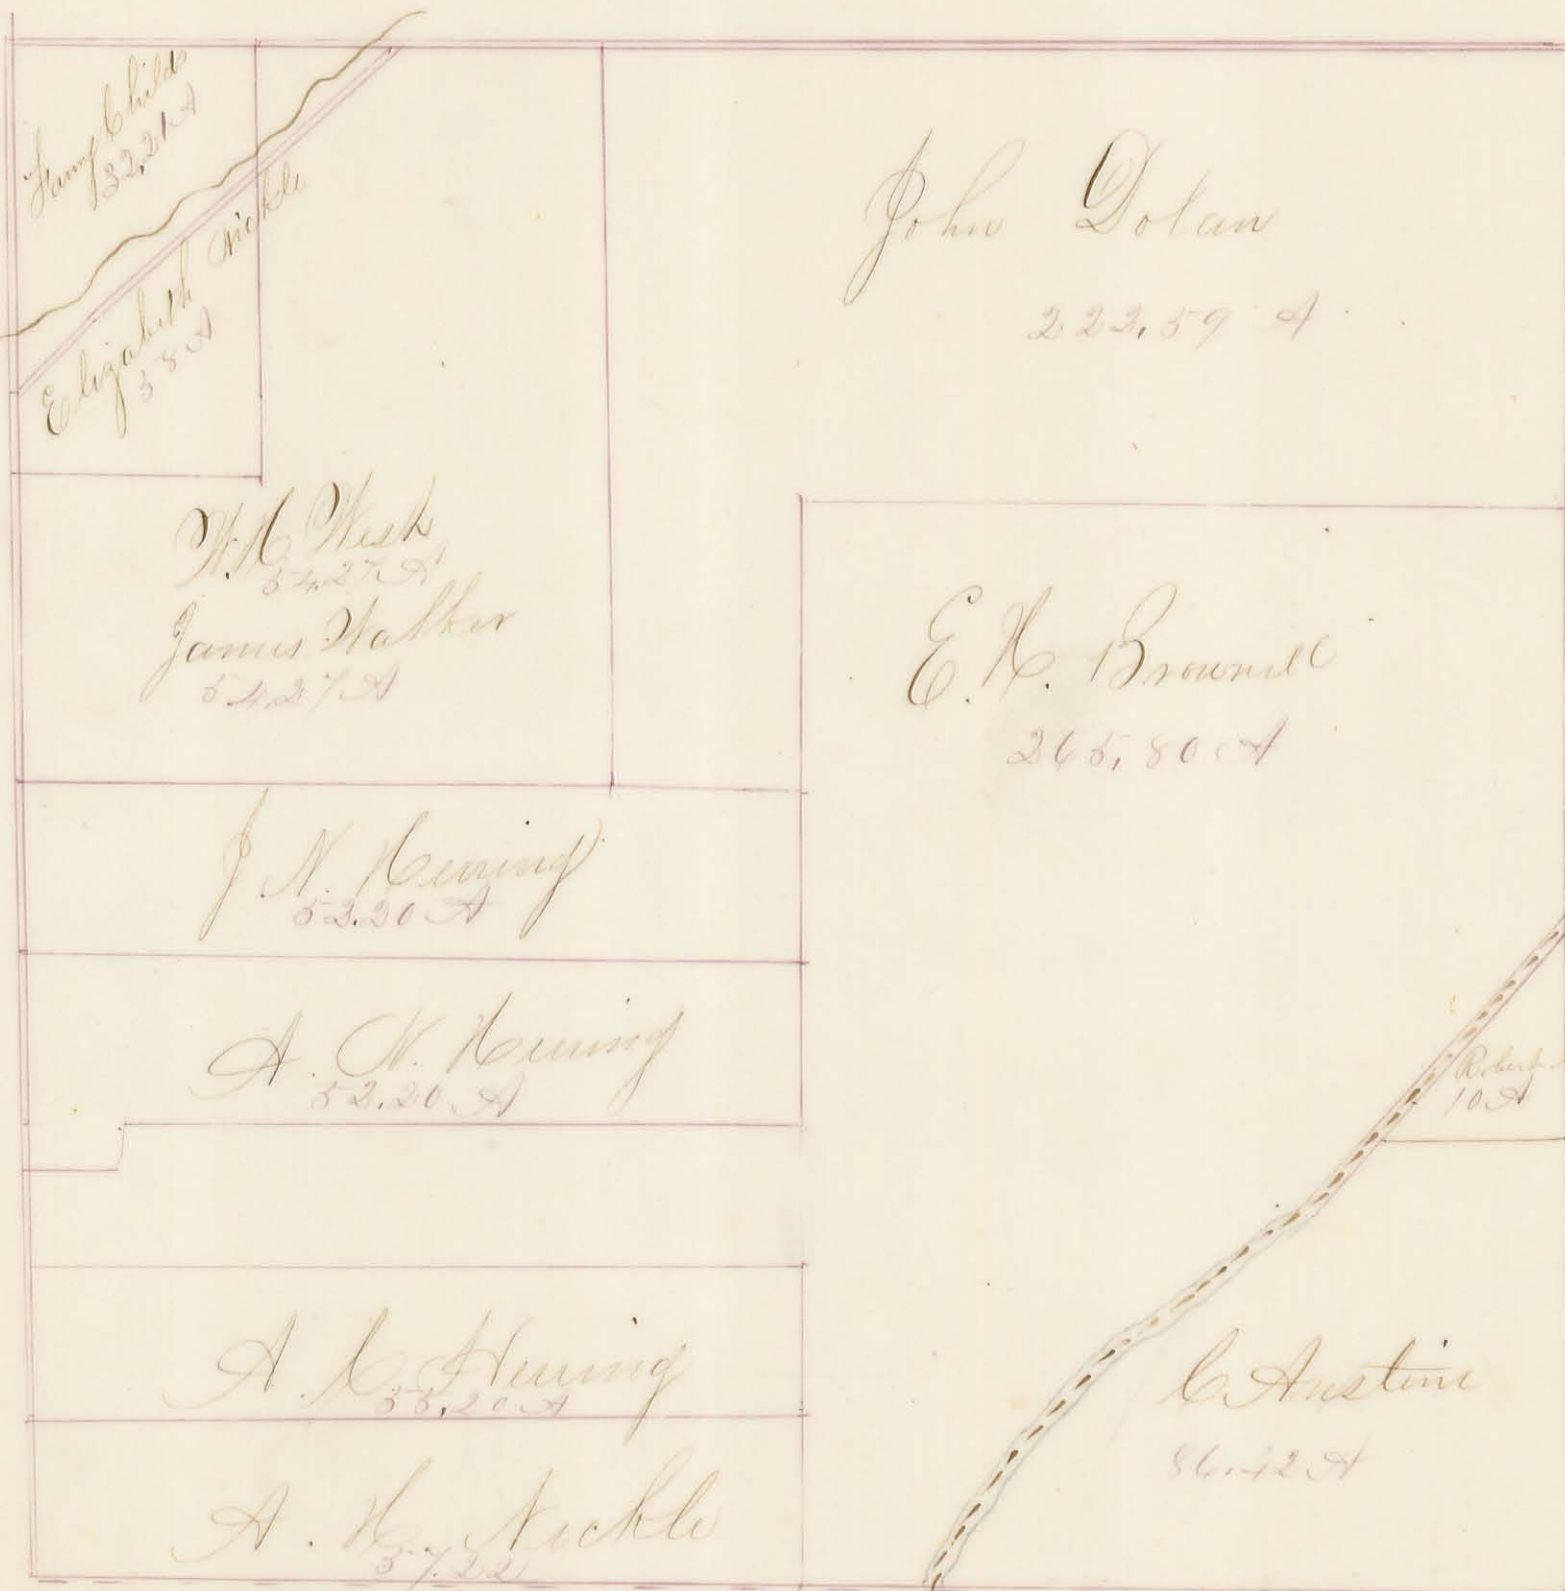 Fanny Childs
32.21 A
Elizabeth Nickle
38 A
John Dolan
222.59 A
W. H. Wish
54.27 A
James Walker
54.27 A
E. H. Brownell
265.80 A
J N. Herring
52.20 A
A. N. Herring
52.20 A
Robert
10 A
A. C. Herring
55.20 A
C Austine
86.42 A
A. H. Nickle
57.22